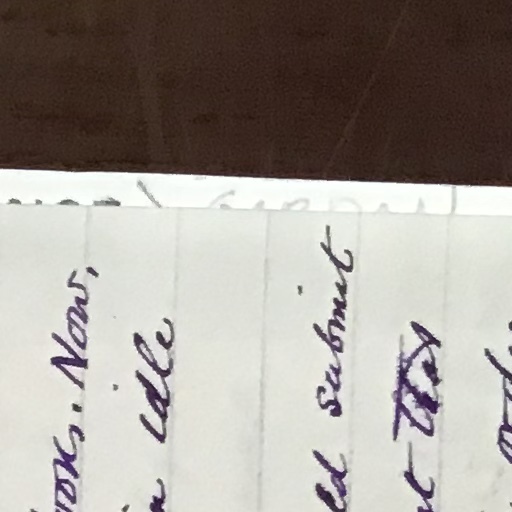 ooks. Now,
in idle
ld submit
t that
order